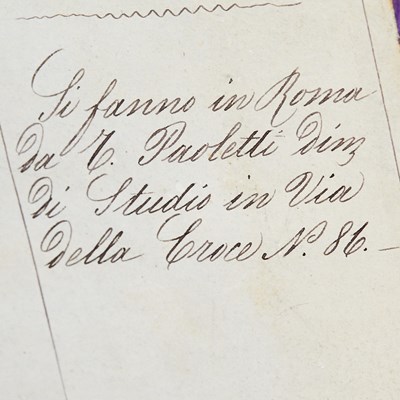 Si fanno in Roma
da T. Paoletti dimz
di Studio in Via
della Croce N. 86. –